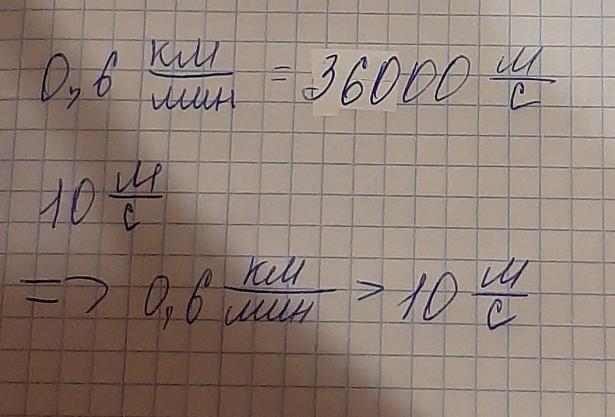 0,6 км/мин = 36000 м/с
10 м/с
=> 0,6 км/мин > 10 м/с